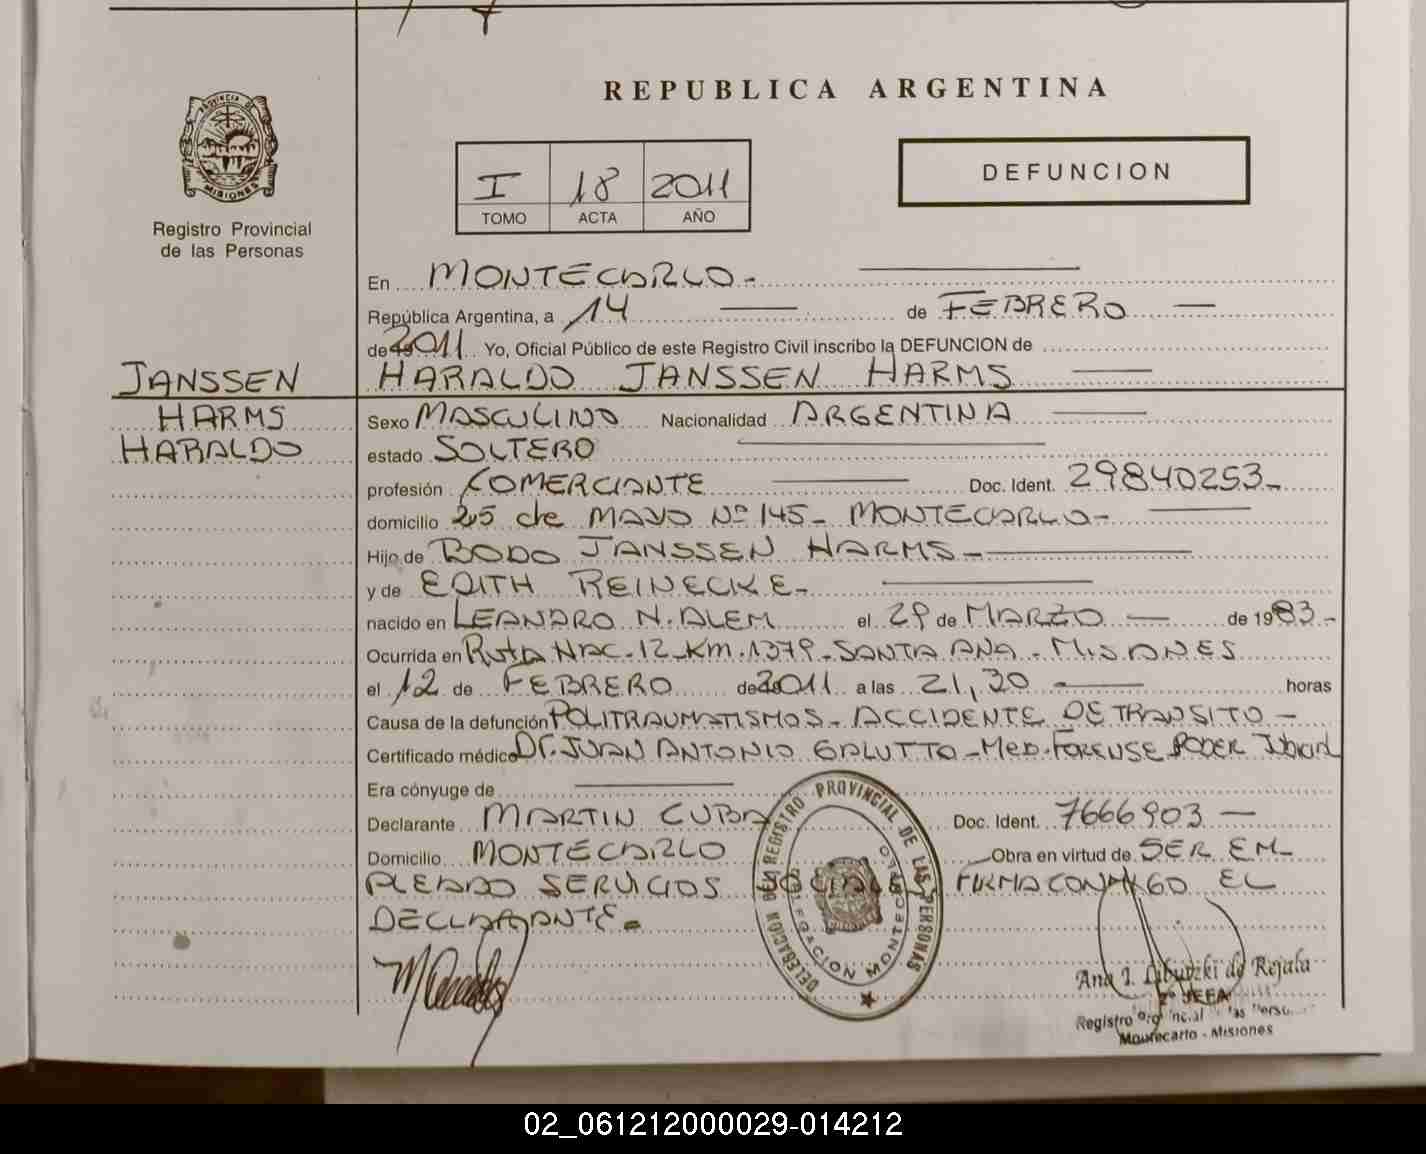 REPUBLICA ARGENTINA
PROVINCIA DE
MISIONES
Registro Provincial
de las Personas
I 18 2011
TOMO ACTA AÑO
DEFUNCION
En MONTECARLO-
República Argentina, a 14 de FEBRERO
de 2011 Yo, Oficial Público de este Registro Civil inscribo la DEFUNCION de
JANSSEN HARALDO JANSSEN HARMS
HARMS Sexo MASCULINO Nacionalidad ARGENTINA
HARALDO estado SOLTERO
profesión COMERCIANTE Doc. Ident. 29840253-
domicilio 25 de MAYO Nº 145- MONTECARLO-
Hijo de BODO JANSSEN HARMS-
y de EDITH REINECKE-
nacido en LEANDRO N. ALEM el 29 de MARZO de 1983-
Ocurrida en Ruta NAC-12-Km.1379-SANTA ANA-MISIONES
el 12 de FEBRERO de 2011 a las 21,20 horas
Causa de la defunción POLITRAUMATISMOS-ACCIDENTE DE TRANSITO-
Certificado médico Dr. JUAN ANTONIO GALUTTO-MED-FORENSE PODER Judicial
Era cónyuge de
Declarante MARTIN CUBA Doc. Ident. 7666903
Domicilio MONTECARLO Obra en virtud de SER EM-
PLEADO SERVICIOS SOCIALES FIRMA CONMIGO EL
DECLARANTE-
DELEGACION DEL REGISTRO PROVINCIAL DE LAS PERSONAS
DELEGACION MONTECARLO
Ana I. Libutzki de Rejala
2º JEFA
Registro Provincial de las Personas
Montecarlo - Misiones
02_061212000029-014212